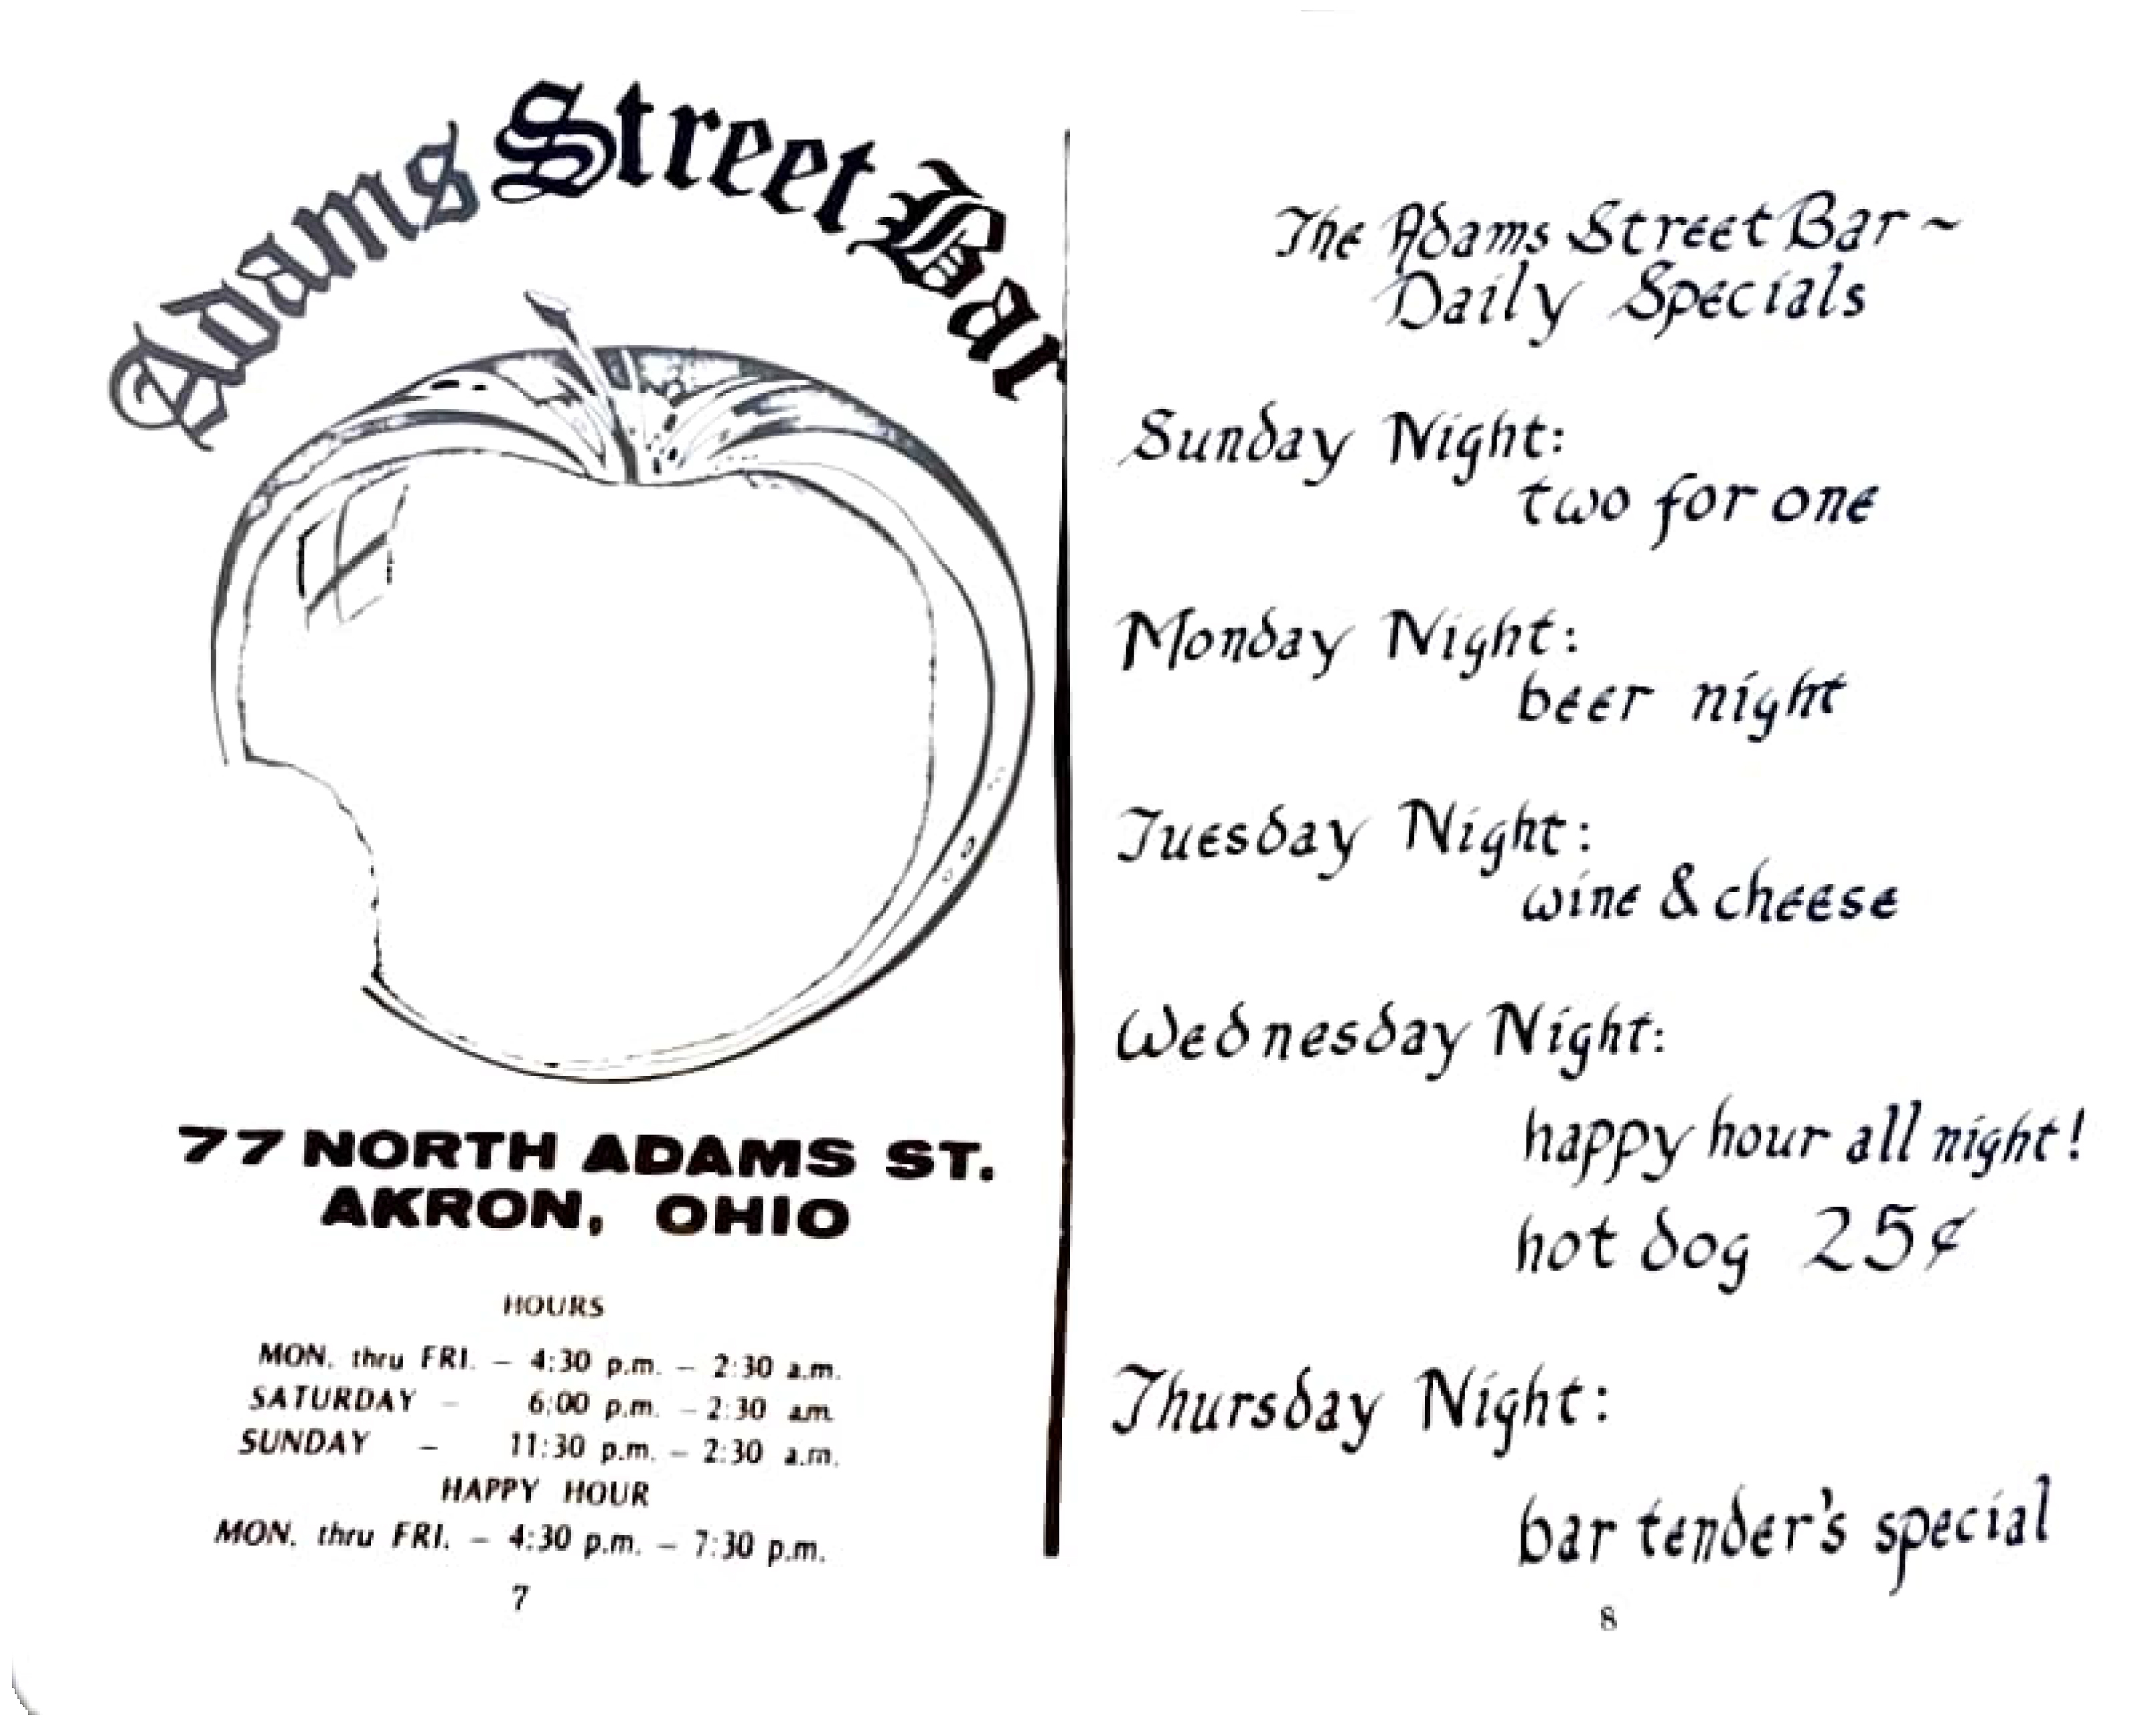 Adams Street Bar
77 NORTH ADAMS ST.
AKRON, OHIO
HOURS
MON. thru FRI. – 4:30 p.m. – 2:30 a.m.
SATURDAY – 6:00 p.m. – 2:30 a.m.
SUNDAY – 11:30 p.m. – 2:30 a.m.
HAPPY HOUR
MON. thru FRI. – 4:30 p.m. – 7:30 p.m.
7
The Adams Street Bar ~
Daily Specials
Sunday Night:
two for one
Monday Night:
beer night
Tuesday Night:
wine & cheese
Wednesday Night:
happy hour all night!
hot dog 25¢
Thursday Night:
bar tender's special
8